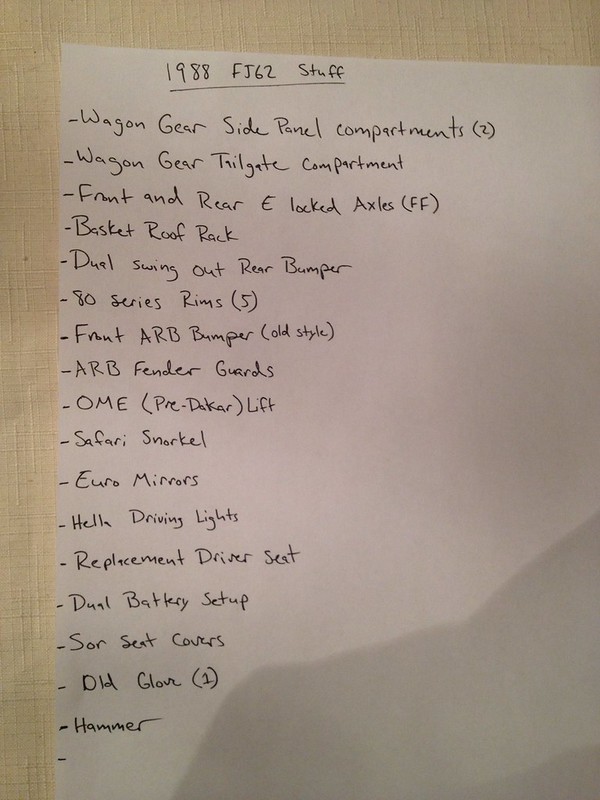 1988 FJ62 Stuff
- Wagon Gear Side Panel compartments (2)
- Wagon Gear Tailgate Compartment
- Front and Rear E locked Axles (FF)
- Basket Roof Rack
- Dual swing out Rear Bumper
- 80 series Rims (5)
- Front ARB Bumper (old style)
- ARB Fender Guards
- OME (Pre-Dakar) Lift
- Safari Snorkel
- Euro Mirrors
- Hella Driving Lights
- Replacement Driver Seat
- Dual Battery Setup
- Sor Seat Covers
- Old Glove (1)
- Hammer
-